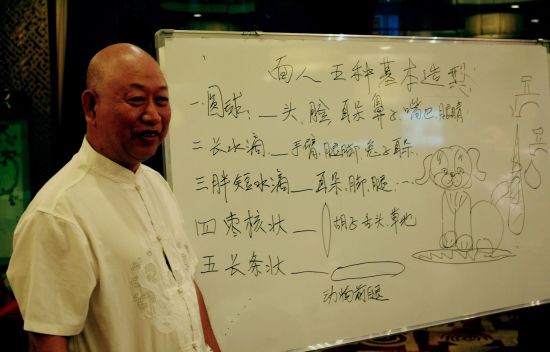 面人五种基本造型
一圆球：—头、脸、耳朵、鼻子、嘴巴、眼睛
二长水滴—手臂、腿脚、兔子耳朵
三胖短水滴—耳朵、脚、腿…
四枣核状—胡子、舌头、草地
五长条状—
动物前腿